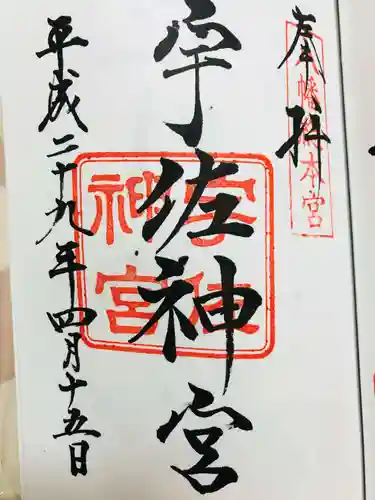 奉拝
八幡総本宮
宇佐神宮
宇佐神宮
平成二十九年四月十五日